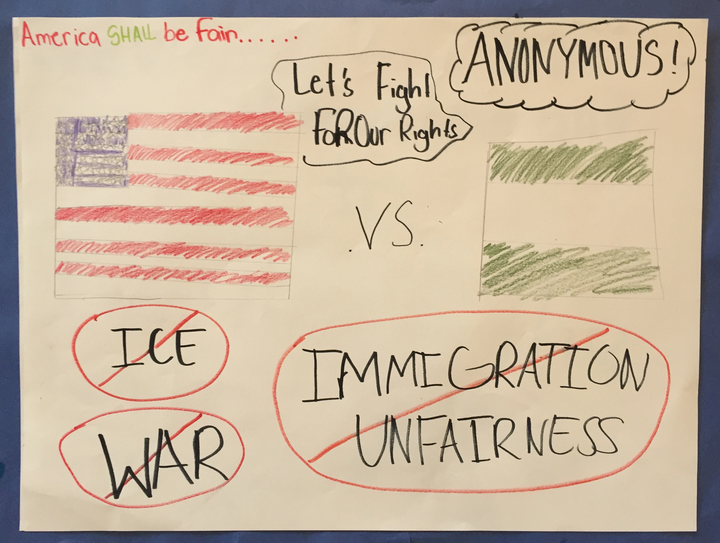 America SHALL be Fair......
ANONYMOUS!
Let's Fight
FOR Our Rights
VS.
ICE
WAR
IMMIGRATION
UNFAIRNESS